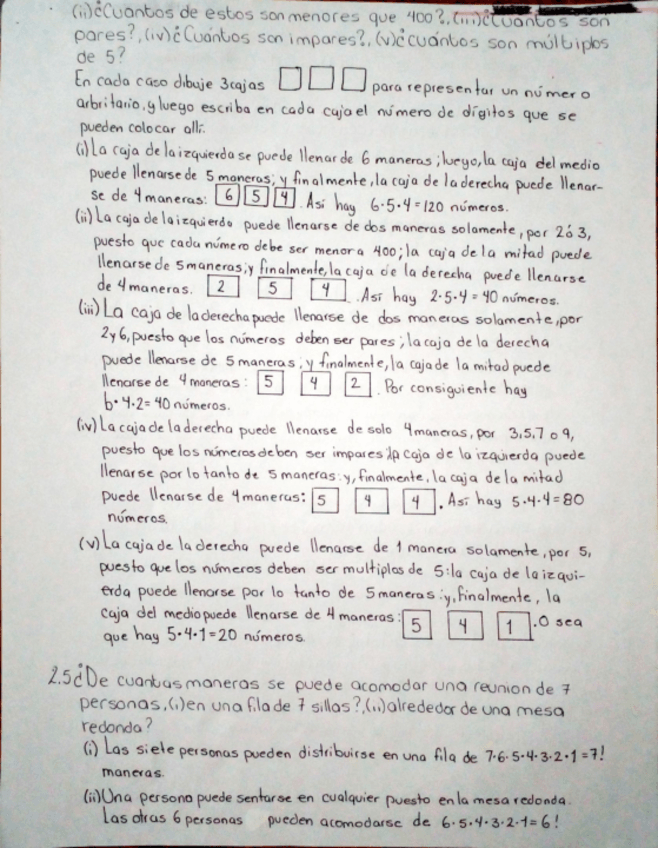 (ii)¿Cuantos de estos son menores que 400?, (iii)¿Cuantos son
pares?, (iv)¿Cuántos son impares?, (v)¿cuántos son múltiplos
de 5?
En cada caso dibuje 3 cajas para representar un número
arbitario, y luego escriba en cada caja el número de dígitos que se
pueden colocar allí.
(i) La caja de la izquierda se puede llenar de 6 maneras; luego, la caja del medio
puede llenarse de 5 maneras; y finalmente, la caja de la derecha puede llenar-
se de 4 maneras: 6 5 4. Así hay 6·5·4=120 números.
(ii) La caja de la izquierda puede llenarse de dos maneras solamente, por 2 ó 3,
puesto que cada número debe ser menor a 400; la caja de la mitad puede
llenarse de 5 maneras; y finalmente, la caja de la derecha puede llenarse
de 4 maneras. 2 5 4. Así hay 2·5·4=40 números.
(iii) La caja de la derecha puede llenarse de dos maneras solamente, por
2 y 6, puesto que los números deben ser pares; la caja de la derecha
puede llenarse de 5 maneras; y finalmente, la caja de la mitad puede
llenarse de 4 maneras: 5 4 2. Por consiguiente hay
6·4·2=40 números.
(iv) La caja de la derecha puede llenarse de solo 4 maneras, por 3,5,7 o 9,
puesto que los números deben ser impares la caja de la izquierda puede
llenarse por lo tanto de 5 maneras: y, finalmente, la caja de la mitad
puede llenarse de 4 maneras: 5 4 4. Así hay 5·4·4=80
números.
(v) La caja de la derecha puede llenarse de 1 manera solamente, por 5,
puesto que los números deben ser multiplos de 5: la caja de la izqui-
erda puede llenarse por lo tanto de 5 maneras: y, finalmente, la
caja del medio puede llenarse de 4 maneras: 5 4 1. O sea
que hay 5·4·1=20 números.
2.5 ¿De cuantas maneras se puede acomodar una reunion de 7
personas, (i) en una fila de 7 sillas?, (ii) alrededor de una mesa
redonda?
(i) Las siete personas pueden distribuirse en una fila de 7·6·5·4·3·2·1=7!
maneras.
(ii) Una persona puede sentarse en cualquier puesto en la mesa redonda.
Las otras 6 personas pueden acomodarse de 6·5·4·3·2·1=6!